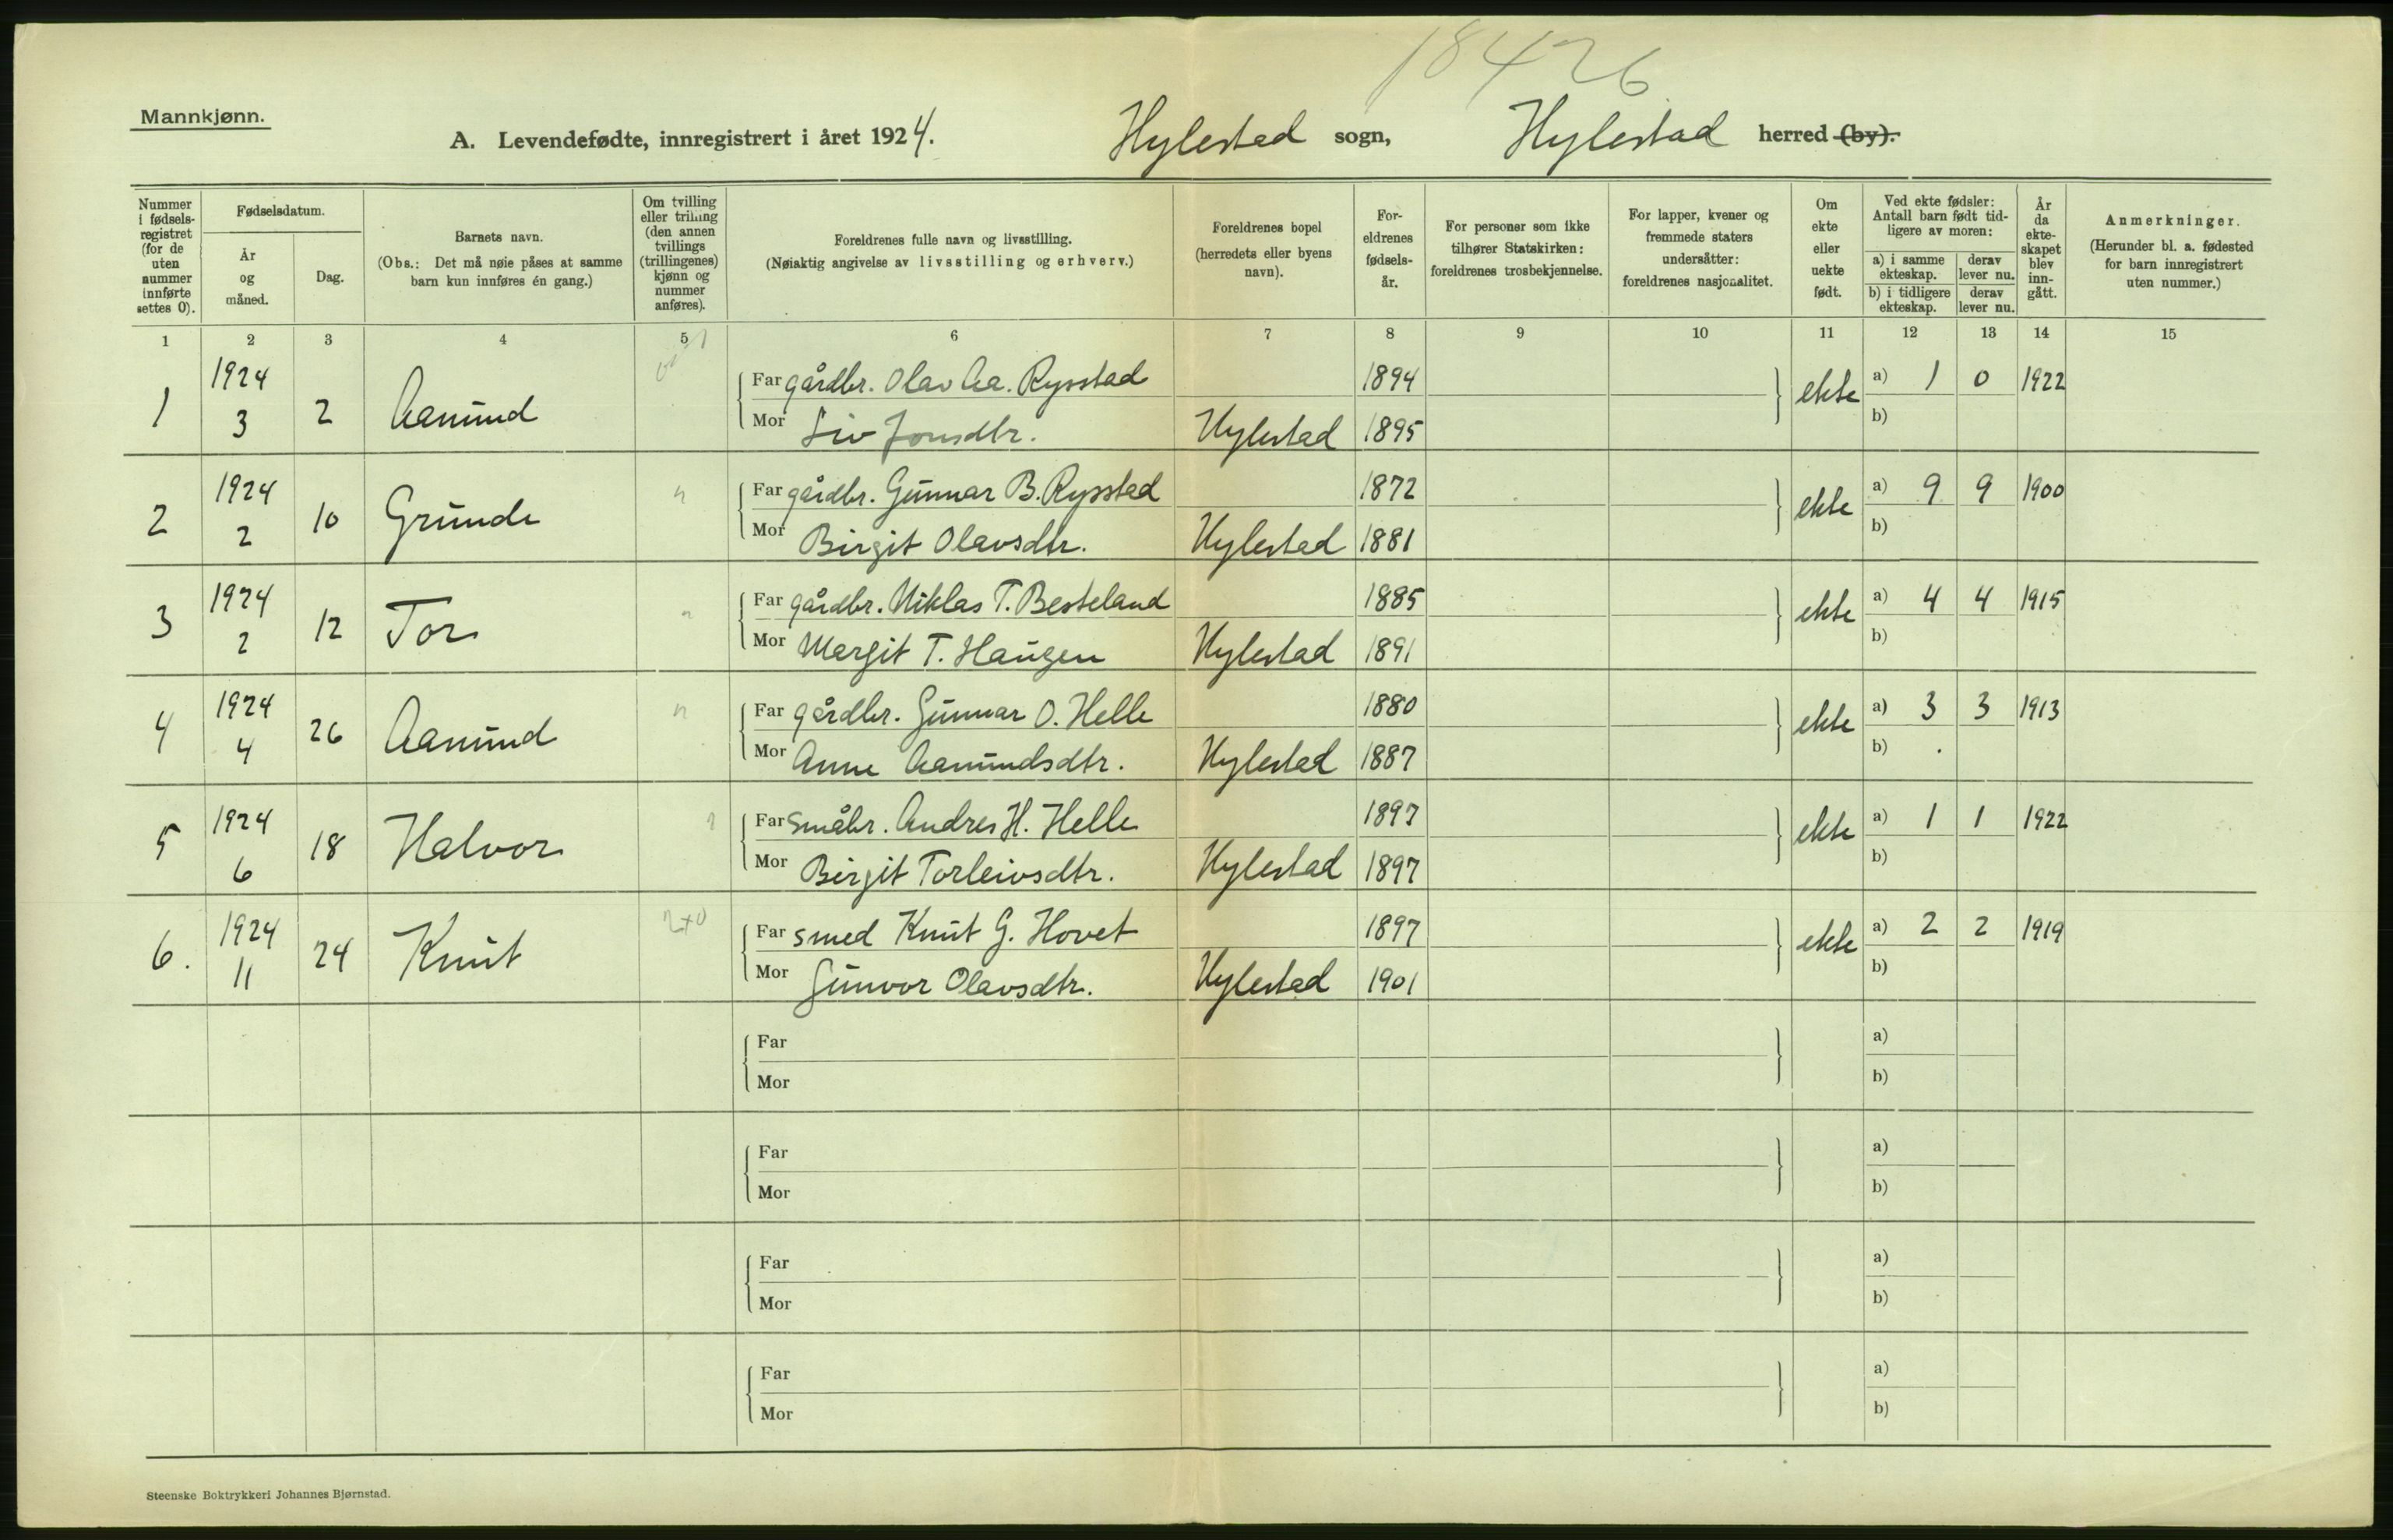 18426
Mannkjønn.
A. Levendefødte, innregistrert i året 1924. Hylestad sogn, Hylestad herred (by).
Nummer i fødsels-registret (for de uten nummer innførte settes 0).
Fødselsdatum.
År og måned.
Dag.
Barnets navn.
(Obs.: Det må nøie påses at samme barn kun innføres én gang.)
Om tvilling eller trilling (den annen tvillings (trillingenes) kjønn og nummer anføres).
Foreldrenes fulle navn og livsstilling.
(Nøiaktig angivelse av livsstilling og erhverv.)
Foreldrenes bopel
(herredets eller byens navn).
For-eldrenes fødsels-år.
For personer som ikke tilhører Statskirken: foreldrenes trosbekjennelse.
For lapper, kvener og fremmede staters undersåtter: foreldrenes nasjonalitet.
Om ekte eller uekte født.
Ved ekte fødsler: Antall barn født tid-ligere av moren:
a) i samme ekteskap.
derav lever nu.
b) i tidligere ekteskap.
derav lever nu.
År da ekte-skapet blev inn-gått.
Anmerkninger.
(Herunder bl. a. fødested for barn innregistrert uten nummer.)
1 2 3 4 5 6 7 8 9 10 11 12 13 14 15
1 1924 3 2 Aamund
Far gårdbr. Olav Aa. Rysstad 1894 ekte a) 1 0 1922
Mor Liv Jonsdtr. Hylestad 1895 b)
2 1924 2 10 Grunde
Far gårdbr. Gunnar B. Rysstad 1872 ekte a) 9 9 1900
Mor Birgit Olavsdtr. Hylestad 1881 b)
3 1924 2 12 Tor
Far gårdbr. Niklas T. Besteland 1885 ekte a) 4 4 1915
Mor Margit T. Haugen Hylestad 1891 b)
4 1924 4 26 Aamund
Far gårdbr. Gunnar O. Helle 1880 ekte a) 3 3 1913
Mor Anne Aamundsdtr. Hylestad 1887 b)
5 1924 6 18 Halvor
Far småbr. Andres H. Helle 1897 ekte a) 1 1 1922
Mor Birgit Torleivsdtr. Hylestad 1897 b)
6. 1924 11 24 Knut
Far smed Knut G. Hovet 1897 ekte a) 2 2 1919
Mor Gunvor Olavsdtr. Hylestad 1901 b)
Far a)
Mor b)
Far a)
Mor b)
Far a)
Mor b)
Far a)
Mor b)
Steenske Boktrykkeri Johannes Bjørnstad.